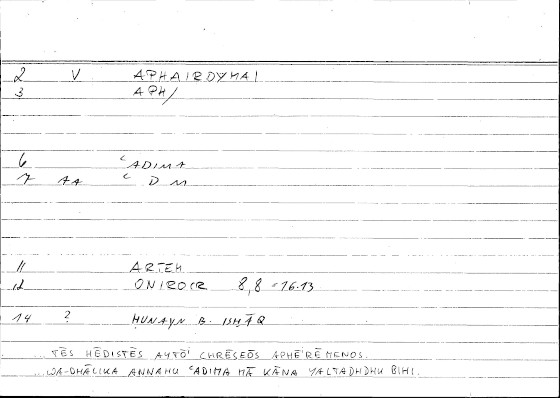 2 V APHAIROYMAI
3 APH/
6 ʿADIMA
7 AA ʿ D M
11 ARTEM
12 ONIROCR 8,8 = 16.13
14 ? ḤUNAYN B. ISḤĀQ
...TĒS HĒDISTĒS AYTŌ' CHRĒSEŌS APHĒ'RĒMENOS.
...WA-DHĀLIKA ANNAHU ʿADIMA MĀ KĀNA YALTADHDHU BIHI.